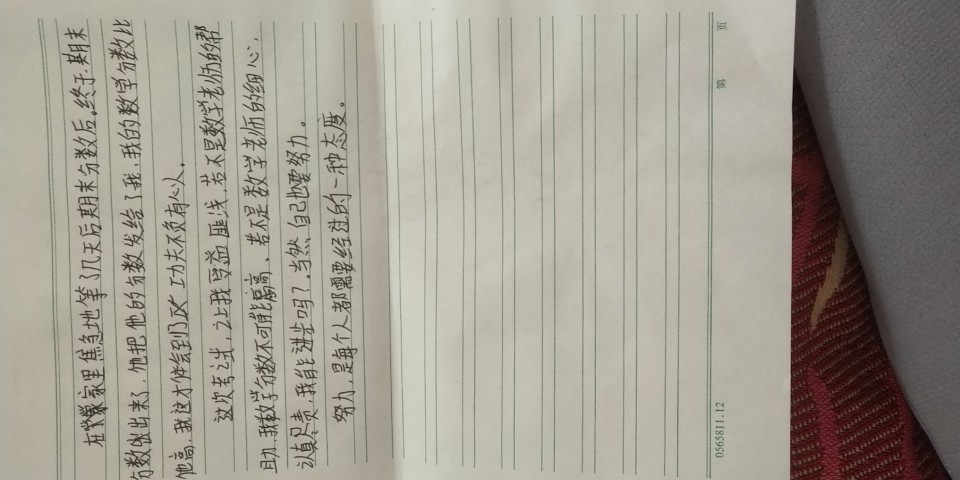 在家里焦急地等了几天后期末分数后。终于,期末
分数出来了,他把他的分数发给了我,我的数学分数比
他高,我这才体会到了功夫不负有心人。
这次考试,让我受益匪浅,若不是数学老师的帮
助,我数学分数不可能高、若不是数学老师的细心,
认真尽责,我能进步吗?当然自己也要努力。
努力,是每个人都需要经过的一种态度。
第 页
0565811.12